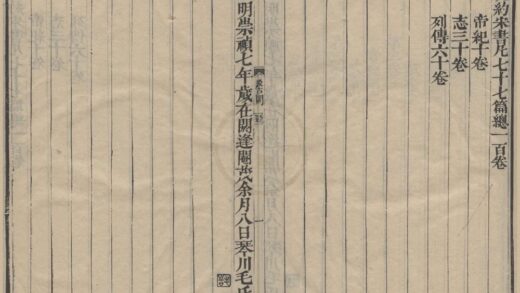 約宋書凡七十七篇總一百卷
帝紀十卷
志三十卷
列傳六十卷
明崇禎七年歲在閼逢閹茂余月八日琴川毛氏